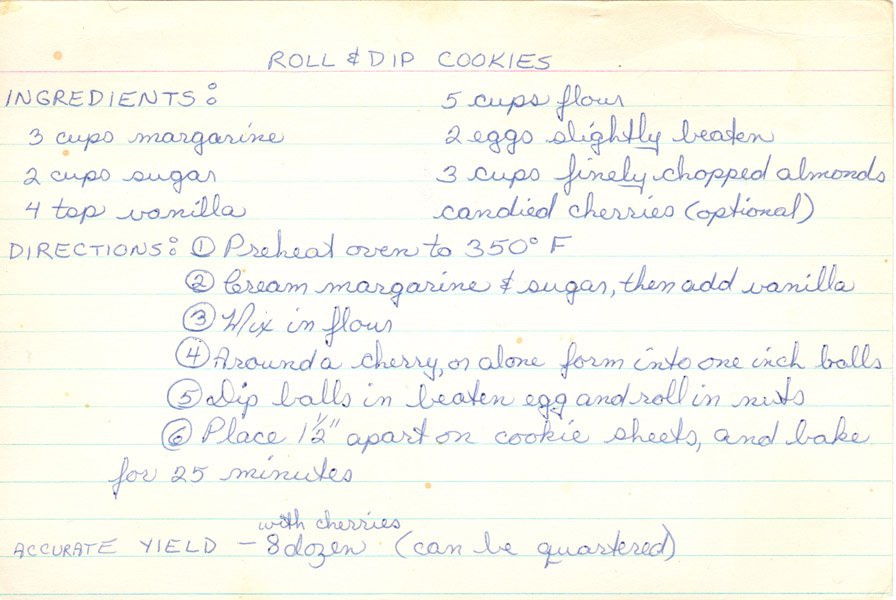 ROLL & DIP COOKIES
INGREDIENTS:
3 cups margarine
2 cups sugar
4 tsp vanilla
5 cups flour
2 eggs slightly beaten
3 cups finely chopped almonds
candied cherries (optional)
DIRECTIONS: ① Preheat oven to 350° F
② Cream margarine & sugar, then add vanilla
③ Mix in flour
④ Around a cherry, or alone form into one inch balls
⑤ Dip balls in beaten egg and roll in nuts
⑥ Place 1½" apart on cookie sheets, and bake
for 25 minutes
with cherries
ACCURATE YIELD - 8 dozen (can be quartered)